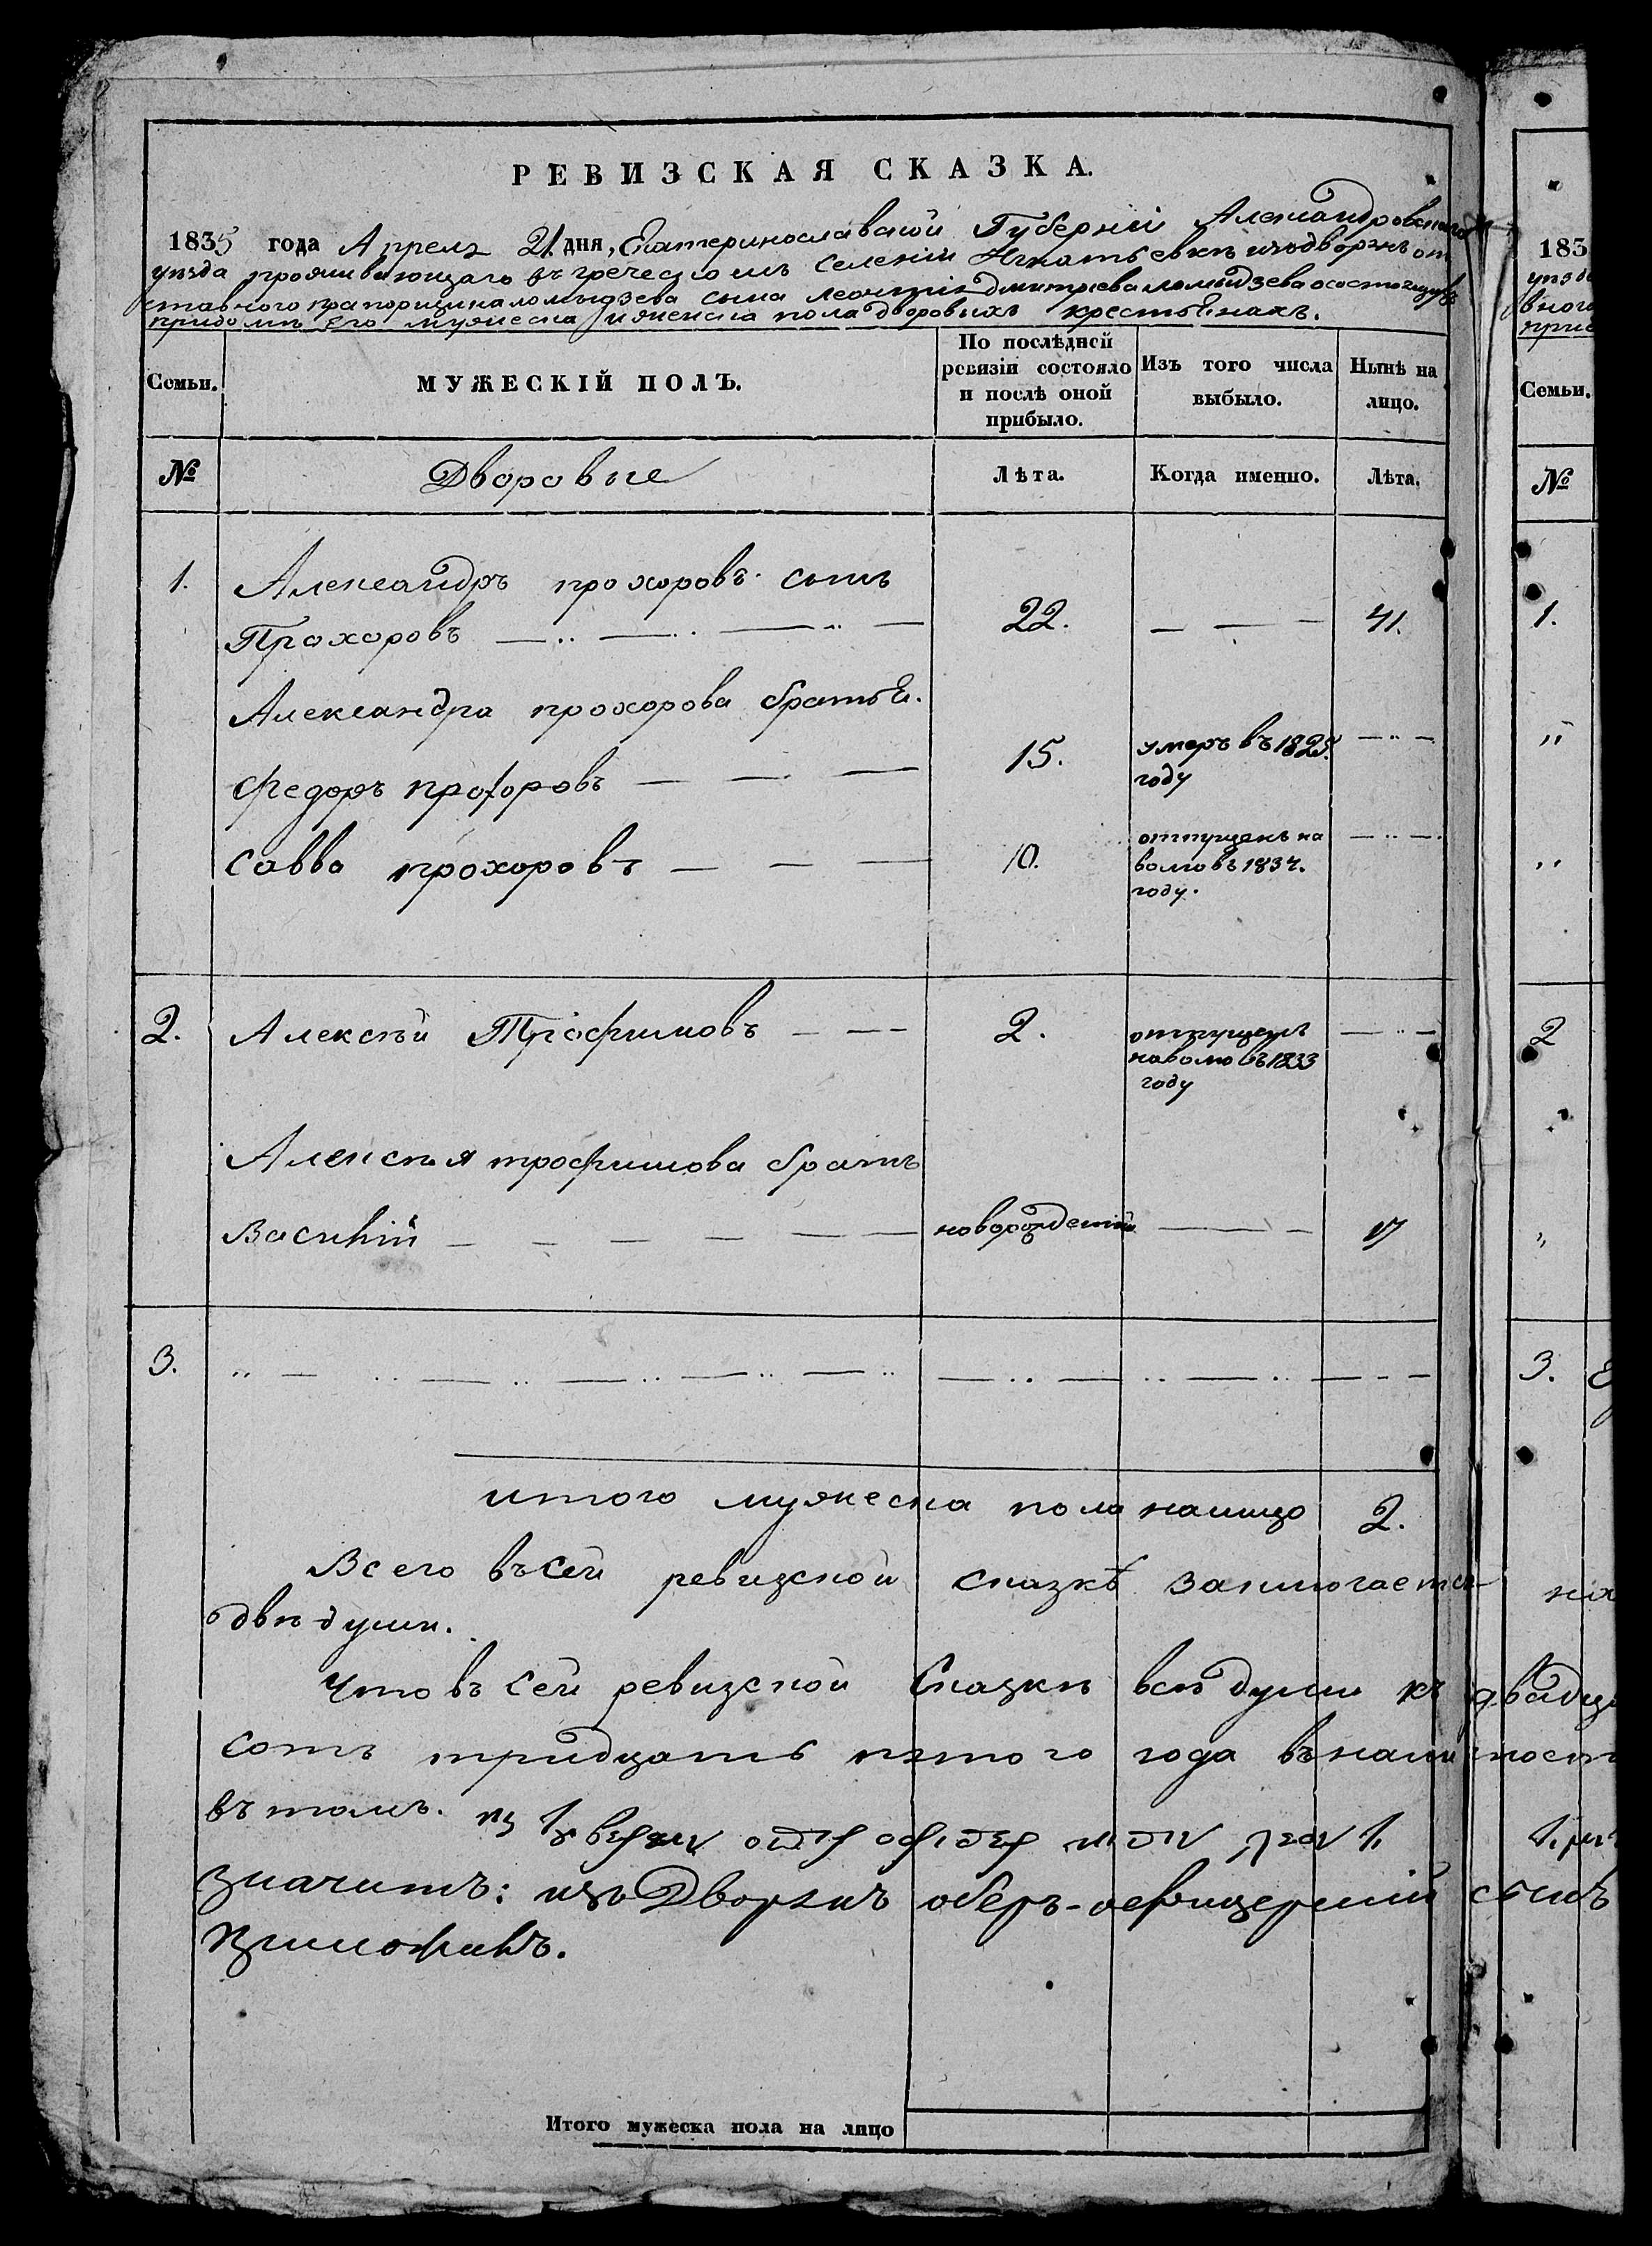 РЕВИЗСКАЯ СКАЗКА.
1835 года Апреля 21 дня, Екатеринославской Губерніи Александровскаго
уѣзда проживающаго въ греческомъ селеніи Игнатьевкѣ изъ дворянъ от
ставного прапорщика ломыдзева сына леонтія дмитріева ломыдзева о состоящихъ
при домѣ его мужеска и женска пола дворовыхъ крестьянахъ.
Семьи.
МУЖЕСКІЙ ПОЛЪ.
По послѣдней ревизіи состояло и послѣ оной прибыло.
Изъ того числа выбыло.
Нынѣ на лицо.
№ Дворовые Лѣта. Когда именно. Лѣта.
1. Александръ прохоровъ сынъ
Прохоровъ 22. 41.
Александра прохорова братья.
Федоръ прохоровъ 15. умеръ въ 1825. году
Савва прохоровъ 10. отпущенъ на волю въ 1834. году.
2. Алексѣй Трофимовъ 2. отпущенъ на волю въ 1833 году
Алексѣя трофимова братъ
Василій новорожденный 17
3.
итого мужеска пола налицо 2.
Всего въ сей ревизской сказкѣ заключается
двѣ души.
Что въ сей ревизской Сказкѣ всѣ души къ двадц
сотъ тридцать пятого года въ нали
въ томъ.
значитъ: изъ Дворянъ оберъ-офицерскій сынъ
Итого мужеска пола на лицо
183
уѣзда
вного
при
Семьи.
№
1.
2
3.